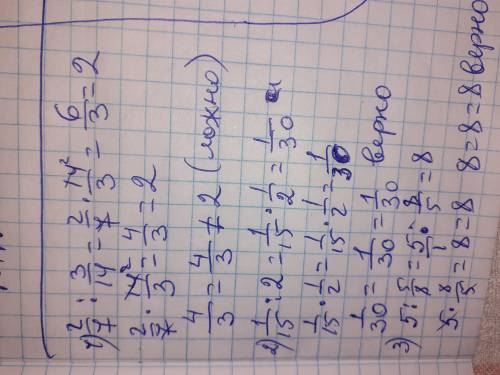 1) 2/7 : 3/14 = 2/7 · 14²/3 = 6/3 = 2
2/7 · 14²/3 = 4/3 = 2
4/3 = 4/3 ≠ 2 (ложно)
2) 1/15 : 2 = 1/15 · 1/2 = 1/30
1/15 · 1/2 = 1/15 · 1/2 = 1/30
1/30 = 1/30 = 1/30 верно
3) 5 : 5/8 = 5/1 · 8/5 = 8
5 · 8/5 = 8 = 8   8 = 8 = 8 верно